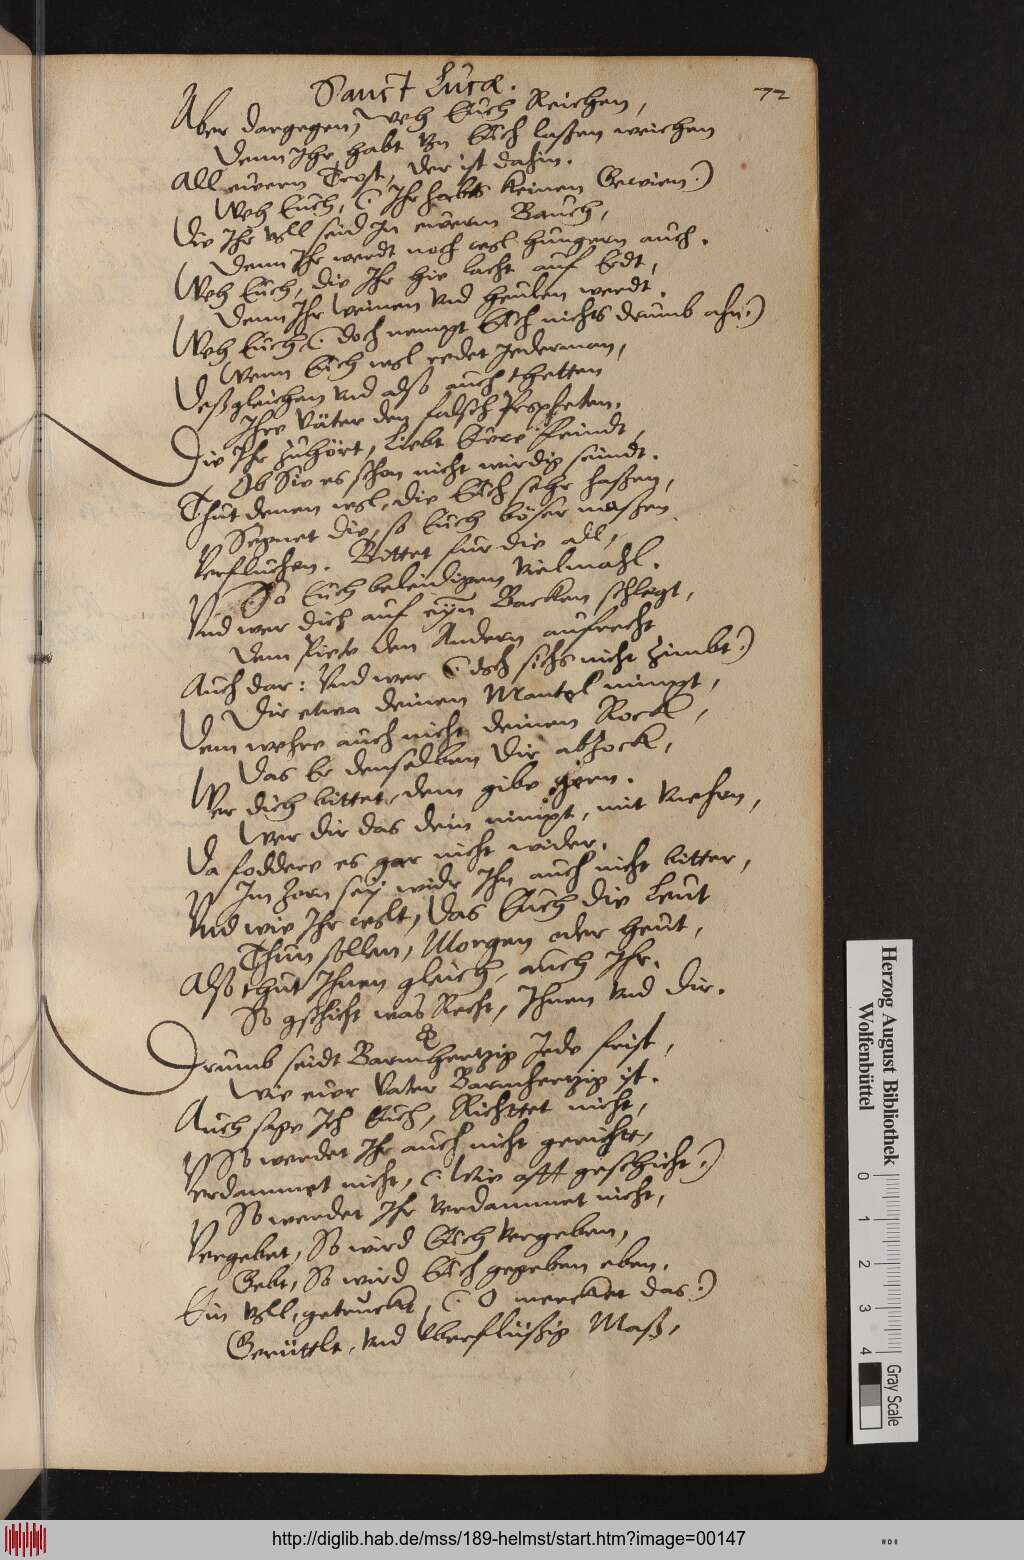 Sanct Lucæ.
72
Aber dargegen, Weh Euch Reichen,
Denn Ihr habt vn Euch laßen weichen
All euvern Trost, der ist dahin.
Weh Euch, (: Ihr habts keinen Gewien:)
Die Ihr voll seid In euvern Bauch,
Denn Ihr werdt noch wol hungern auch.
Weh Euch, die Ihr hie lacht auf Erdt,
Denn Ihr Weinen vnd heulen werdt.
Weh Euch (: doch nempt Euch nichts drumb ahn:)
Wenn Euch wol redet Jederman,
Deßgleichen vnd alßo auch thetten
Ihre Väter den falsch Propheten.
Die Ihr zuhört, Liebt Eure Feindt,
Ob Sie es schon nicht wirdig seindt.
Thut denen wol, die Euch sehr haßen,
Segnet die, so Euch böser maßen
Verfluchen. Bittet fur die all,
So Euch beleidigen Vielmahl.
Vnd wer dich auf eyn Backen schlegt,
Dem Piete den Andern aufrecht
Auch dar: Vnd wer (: doch sichs nicht zimbt:)
Dir etwa deinen Mantel nimpt,
Dem wehre auch nicht deinen Rock,
Das Er denselben Dir abzock,
Wer dich bittet, dem gibe gern.
Wer dir das dein nimpt, mit
Da foddere es gar nicht wider.
Im Zorn sey widr Ihn auch nicht bitter,
Vnd wie Ihr wolt, Das Euch die Leut
Thun sollen, Morgen oder heut,
Alßo thut Ihnen gleich, auch Ihr.
So gschicht was Recht, Ihnen vnd Dir.
Drumb seidt Barmhertzig Jede frist,
Wie euer Vater Barmhertzig ist.
Auch sage Ich Euch, Richttet nicht,
So werdet Ihr auch nicht gericht,
Verdammet nicht, (: Wie offt geschicht:)
So werdet Ihr verdammet nicht,
Vergebet, So wird Euch vergeben,
Gebt, So wird Euch gegeben eben.
Ein voll, getruckt, (: O mercket das:)
Gerüttlt, vnd Vberflüßig Maß,
Herzog August Bibliothek
Wolfenbüttel
0 1 2 3 4
Gray Scale
http://diglib.hab.de/mss/189-helmst/start.htm?image=00147